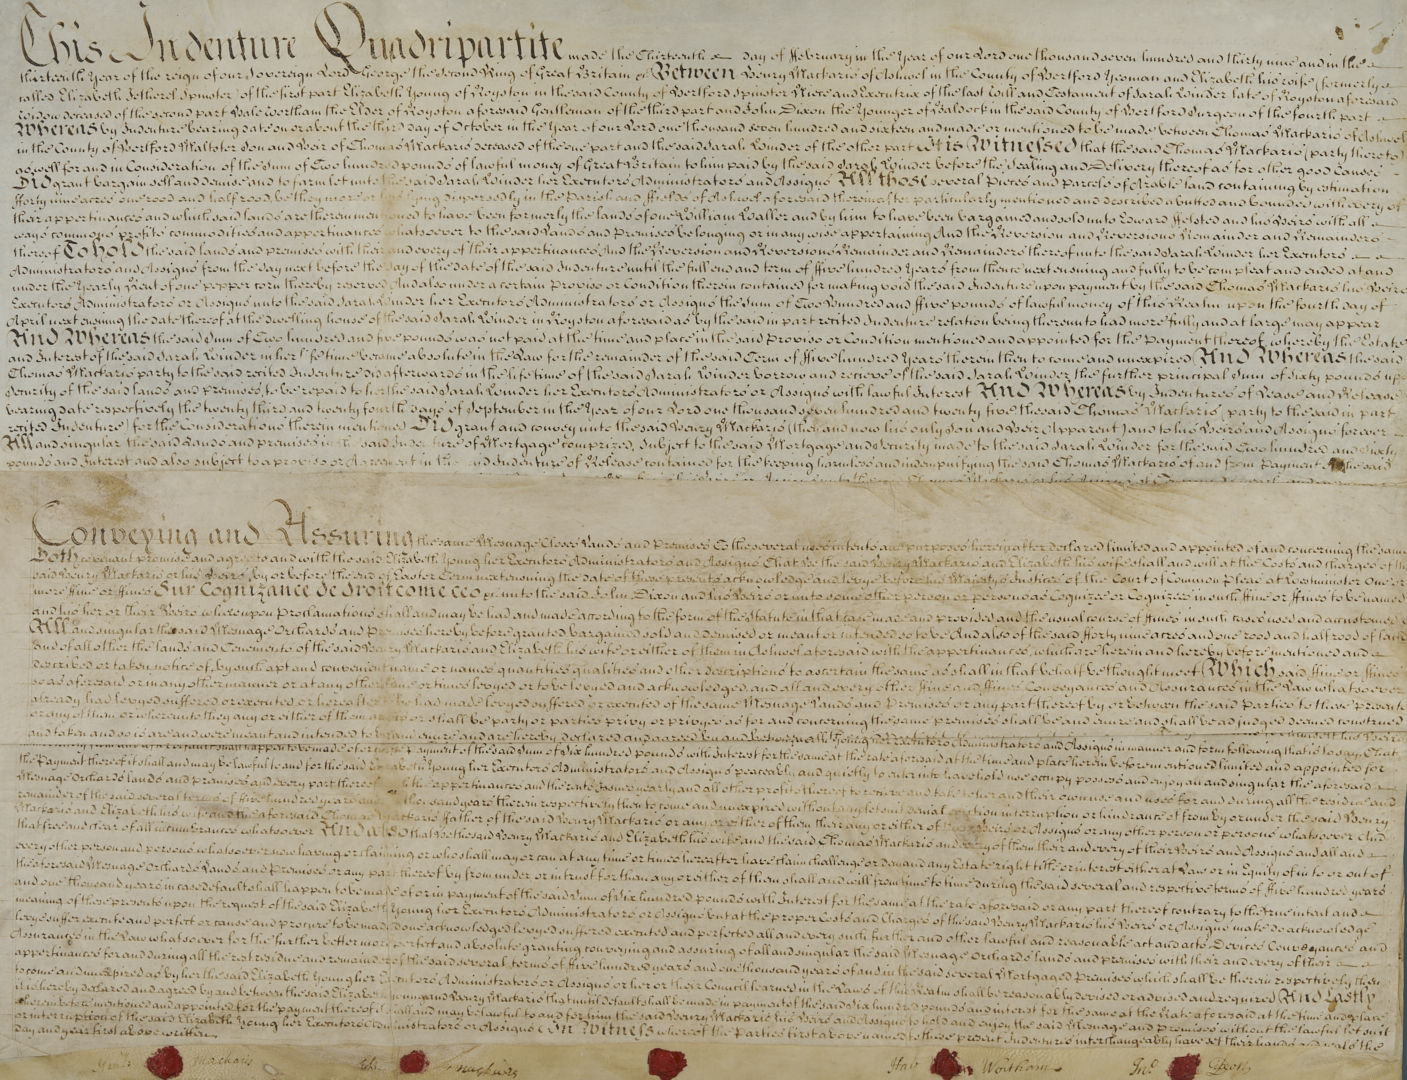 This Indenture Quadripartite made the Thirteenth day of February in the Year of our Lord one thousand seven hundred and thirty nine and in the
thirteenth Year of the reign of our Sovereign Lord George the Second King of Great Britain &c Between Henry Mackaris of Ashwel in the County of Hertford Yeoman and Elizabeth his wife (formerly
called Elizabeth Spinster) of the first part Elizabeth Young of Royston in the said County of Hertford Spinster Niece and Executrix of the last Will and Testament of Sarah Kinder late of Royston aforesaid
Widow deceased of the second part Hale Wortham the Elder of Royston aforesaid Gentleman of the third part and John Dixon the Younger of Baldock in the said County of Hertford Surgeon of the fourth part
Whereas by Indenture bearing date on or about the third day of October in the Year of our Lord one thousand seven hundred and sixteen and made or mentioned to be made between Thomas Mackaris of Ashwel
in the County of Hertford Maltster Son and Heir of Thomas Mackaris deceased of the one part and the said Sarah Kinder of the other part It is Witnessed that the said Thomas Mackaris (party thereto)
as well for and in Consideration of the Sum of Two hundred pounds of lawful money of Great Britain to him paid by the said Sarah Kinder before the Sealing and Delivery thereof as for other good Causes
Did grant bargain sell and demise and to farm let unto the said Sarah Kinder her Executors Administrators and Assigns All those several Pieces and parcels of Arable land containing by estimation
fforty nine acres one rood and half rood, be they more or lying dispersedly in the Parish and ffields of Ashwel aforesaid thereinafter particularly mentioned and described abutted and bounded with every of
their appertinances and which said lands are therein mentioned to have been formerly the lands of one William Waller and by him to have been bargained and sold unto Edward and his Heirs with all
ways commons profits commodities and appertinances whatsoever to the said Lands and Premises belonging or in any wise appertaining And the Reversion and Reversions Remainder and Remainders
thereof To hold the said lands and premises with their and every of their Appertinances And the Reversion and Reversions Remainder and Remainders thereof unto the said Sarah Kinder her Executors
Administrators and Assigns from the day next before the day of the date of the said Indenture until the full end and term of ffive hundred Years from thence next ensuing and fully to be compleat and ended at and
under the Yearly Rent of one pepper corn thereby reserved And also under a certain Proviso or Condition therein contained for making void the said Indenture upon payment by the said Thomas Mackaris his Heirs
Executors Administrators or Assigns unto the said Sarah Kinder her Executors Administrators or Assigns the Sum of Two Hundred and ffive pounds of lawful money of this Realm upon the fourth day of
April next ensuing the date thereof at the dwelling house of the said Sarah Kinder in Royston aforesaid as by the said in part recited Indenture relation being thereunto had more fully and at large may appear
And Whereas the said Sum of Two hundred and five pounds was not paid at the time and place in the said Proviso or Condition mentioned and appointed for the Payment thereof whereby the Estate
and Interest of the said Sarah Kinder in her life time became absolute in the Law for the remainder of the said Term of ffive hundred Years therein then to come and unexpired And Whereas the said
Thomas Mackaris party to the said recited Indenture did afterwards in the life time of the said Sarah Kinder borrow and recieve of the said Sarah Kinder the further principal Sum of Sixty pounds
Security of the said lands and premisses, to be repaid to her the said Sarah Kinder her Executors Administrators or Assigns with lawful Interest And Whereas by Indentures of Lease and Release
bearing date respectively the twenty third and twenty fourth days of September in the Year of our Lord one thousand seven hundred and twenty five the said Thomas Mackaris (party to the said in part
recited Indenture) for the Considerations therein mentioned Did grant and convey unto the said Henry Mackaris (then and now his only Son and Heir Apparent) and to his Heirs and Assigns forever
All and singular the said Lands and premises in the said Indenture of Mortgage comprized, Subject to the said Mortgage and Security made to the said Sarah Kinder for the said Two hundred and Sixty
pounds and Interest and also subject to a proviso or Agreement in the said Indenture of Release contained for the keeping harmless and indempnifying the said Thomas Mackaris of and from Payment of the said
Conveying and Assuring the same Messuage Closes Lands and Premises To the several uses intents and purposes hereinafter declared limited and appointed of and concerning the same
Doth covenant promise and agree to and with the said Elizabeth Young her Executors Administrators and Assigns That he the said Henry Mackaris and Elizabeth his wife shall and will at the Costs and charges of the
said Henry Mackaris or his Heirs, by or before the end of Easter Term next ensuing the date of these presents acknowledge and levye before his Majestys Justices of the Court of Common Pleas at Westminster One or
more ffine or ffines Sur Cognizance de droit come ceo &c unto the said John Dixon and his Heirs or unto some other person or persons as Cognizee or Cognizees in such ffine or ffines to be named
and his her or their Heirs whereupon Proclamations shall and may be had and made according to the form of the Statute in that case made and provided and the usual course of ffines in such cases used and accustomed
All and singular the said Messuage Orchards and Premises hereby before granted bargained sold and demised or meant or intended so to be And also of the said fforty nine acres and one rood and half rood of land
And of all other the lands and Tenements of the said Henry Mackaris and Elizabeth his wife or either of them in Ashwel aforesaid with the appertinances, which are herein and hereby before mentioned and
described or taken notice of, by such apt and convenient name or names quantities qualities and other descriptions to ascertain the same as shall in that behalf be thought meet Which said ffine or ffines
so as aforesaid or in any other manner or at any other time or times levyed or to be levyed and acknowledged, and all and every other ffine and ffines Conveyances and Assurances in the Law whatsoever
already had levyed suffered or executed or hereafter to be had made levyed suffered or executed of the same Messuage Lands and Premises or any part thereof by or between the said Parties to these Presents
or any of them or whereunto they any or either of them are or shall be party or parties privy or privyes as for and concerning the same premises shall be and enure and shall be adjudged deemed construed
and taken and so is are and were meant and intended to be and enure and are hereby declared and agreed
the Payment thereof it shall and may be lawful to and for the said Elizabeth Young her Executors Administrators and Assigns peaceably and quietly to enter into have hold use occupy possess and enjoy all and singular the aforesaid
Messuage Orchards lands and premises and every part thereof with the appertinances and the rents issues yearly and all other profits thereof to receive and take to her and their own use and uses for and during all the residue and
remainder of the said several terms of ffive hundred years and one thousand years therein respectively then to come and unexpired without any let suit denial eviction interruption or hindrance of from by or under the said Henry
Mackaris and Elizabeth his wife and the aforesaid Thomas Mackaris ffather of the said Henry Mackaris or any or either of them their any or either of their Heirs or Assigns or any other person or persons whatsoever And
that free and clear of all incumbrances whatsoever And also that he the said Henry Mackaris and Elizabeth his wife and the said Thomas Mackaris and every of them their and every of their Heirs and Assigns and all and
every other person and persons whatsoever now having or claiming or who shall may or can at any time or times hereafter have claim challenge or demand any Estate right title or interest either at Law or in Equity of in to or out of
the aforesaid Messuage Orchards Lands and Premises or any part thereof by from under or in trust for than any or either of them shall and will from time to time during the said several and respective terms of ffive hundred years
and one thousand years in case default shall happen to be made of or in payment of the said Sum of Six hundred pounds with Interest for the same at the rate aforesaid or any part thereof contrary to the true intent and
meaning of these presents upon the request of the said Elizabeth Young her Executors Administrators or Assigns but at the proper Costs and Charges of the said Henry Mackaris his Heirs or Assigns make do acknowledge
levye suffer execute and perfect or cause and procure to be made done acknowledged levyed suffered executed and perfected all and every such further and other lawful and reasonable act and acts Devices Conveyances and
Assurances in the Law whatsoever for the further better more perfect and absolute granting conveying and assuring of all and singular the said Messuage Orchards lands and premises with their and every of their
appertinances for and during all the rest residue and remainder of the said several terms of ffive hundred years and one thousand years of and in the said several Mortgaged Premises which shall be therein respectively then
to come and unexpired as by her the said Elizabeth Young her Executors Administrators or Assigns or her or their Council learned in the Laws of this Realm shall be reasonably devised or advised and required And Lastly
it is hereby declared and agreed by and between the said Elizabeth Young and Henry Mackaris that until default shall be made in payment of the said Six hundred pounds and interest for the same at the Rate aforesaid at the time and place
herein before mentioned and appointed for the payment thereof it shall and may be lawful to and for him the said Henry Mackaris his Heirs and Assigns to hold and enjoy the said Messuage and premises without the lawful let suit
or interruption of the said Elizabeth Young her Executors Administrators or Assigns In Witness whereof the Parties first above named to these present Indentures interchangeably have set their hands and seals the
day and year first above written
Mackaris Mackaris Hale Wortham Jno. Dixon